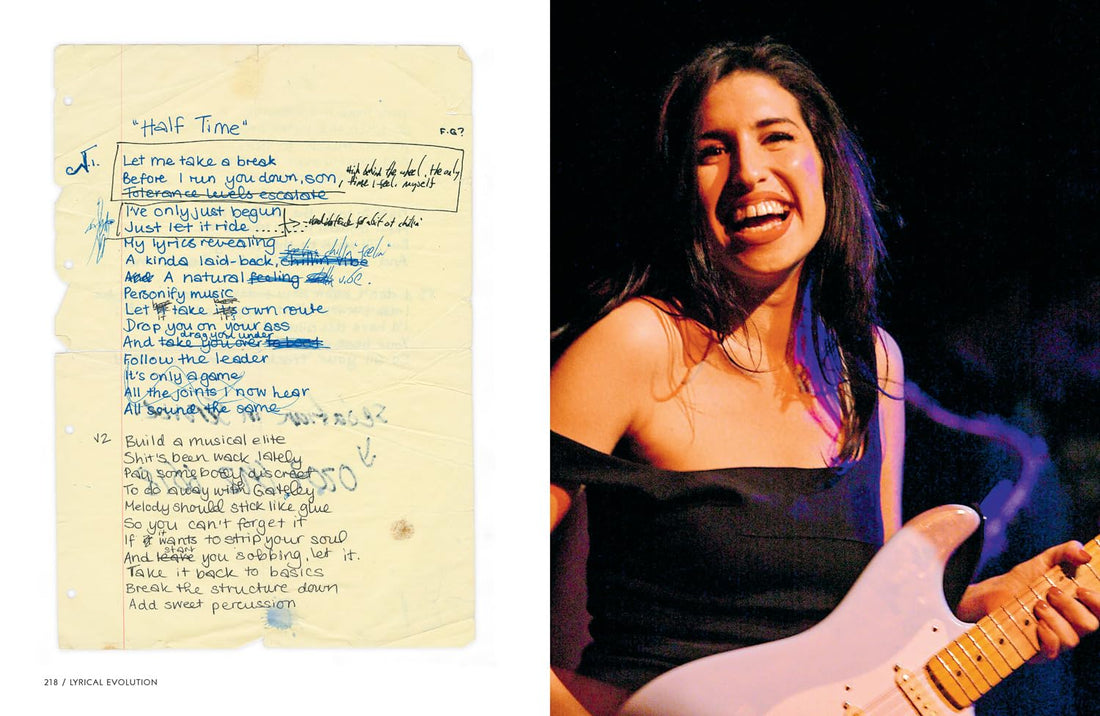 "Half Time"
F.G?
V1.
Let me take a break
Before I run you down, son,
High behind the wheel. The only
time I feel. myself
Tolerance levels escalate
I've only just begun
Just let it ride .....
My lyrics revealing
A kinda laid-back, chillin vibe
feelin
And A natural feeling vibe.
Personify music
Let it take its own route
Drop you on your ass
drag you under
And take you over to boot
Follow the leader
It's only a game
All the joints I now hear
All sound the same
V2 Build a musical elite
Shit's been wack lately
Pay somebody discreet
To do away with Gateley
Melody should stick like glue
So you can't forget it
If it wants to strip your soul
start
And leave you sobbing, let it.
Take it back to basics
Break the structure down
Add sweet percussion
218 / LYRICAL EVOLUTION